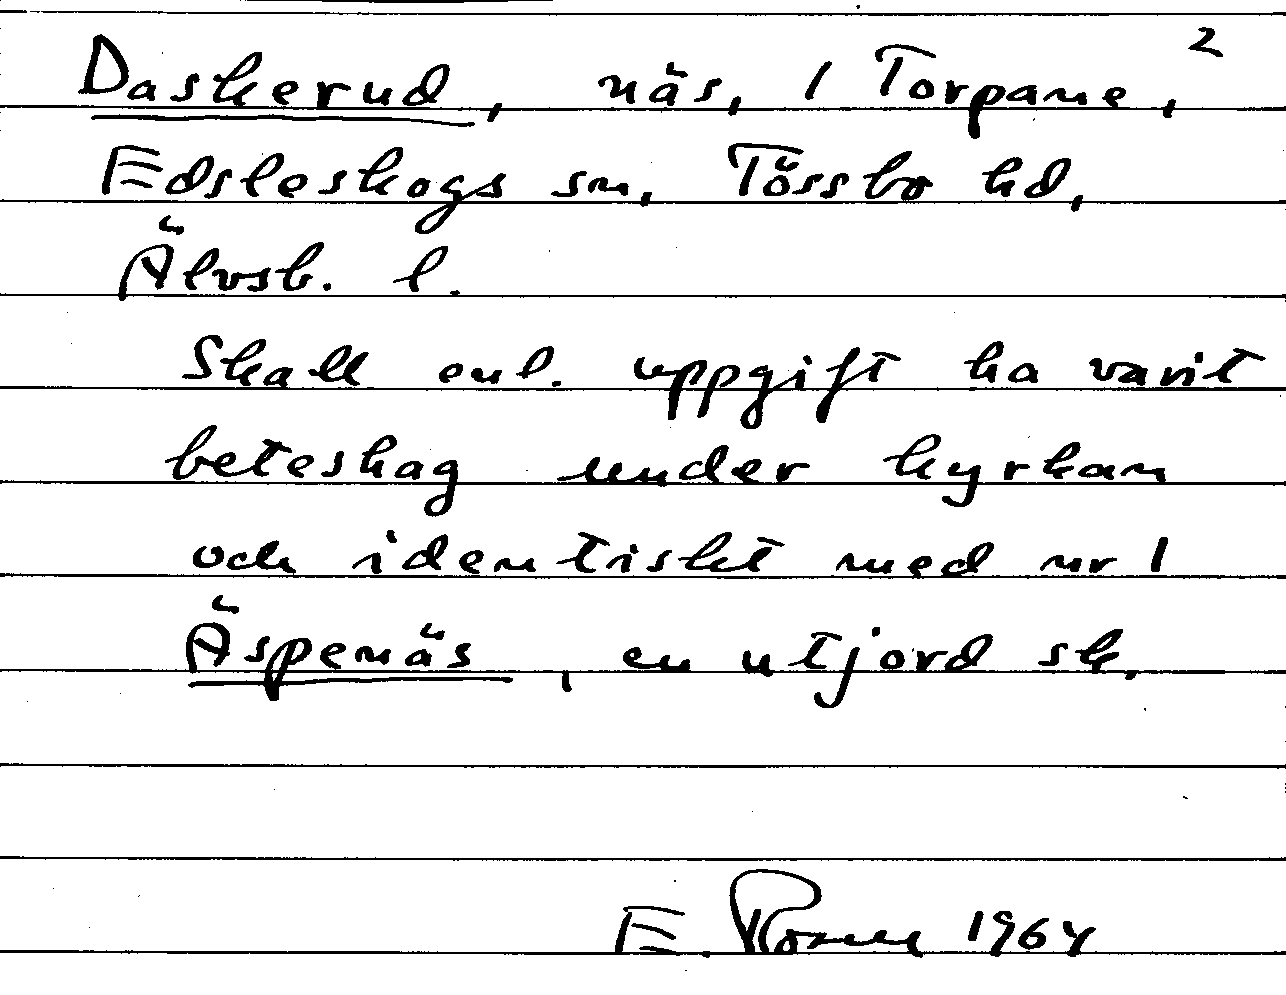 2
Daskerud, näs, 1 Torpane,
Edsleskogs sn, Tössbo hd,
Älvsb. l.
Skall enl. uppgift ha varit
beteshag under kyrkan
och identiskt med nr 1
Äspenäs, en utjord sk.
E. 1964